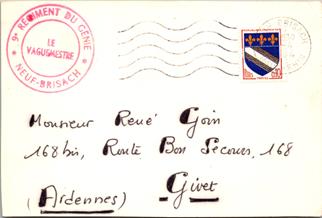 9e RÉGIMENT DU GÉNIE
LE
VAGUEMESTRE
* NEUF-BRISACH *
Monsieur René Goin
168 bis, Route Bon Secours, 168
(Ardennes) Givet